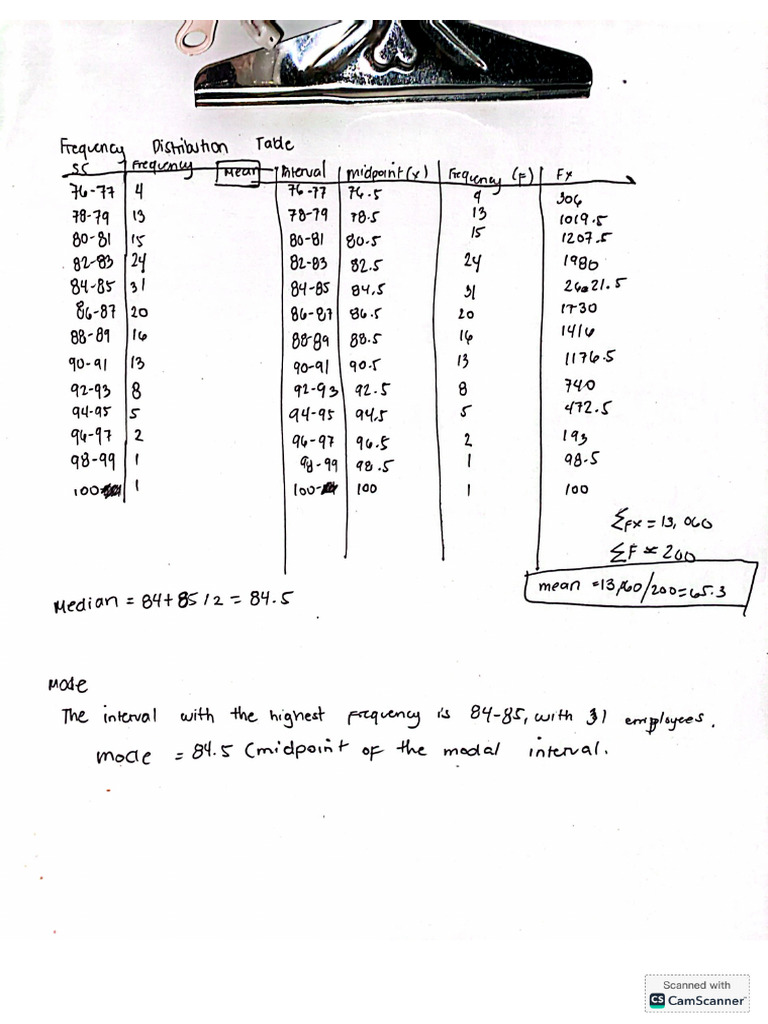 Frequency Distribution Table
SC Frequency Mean Interval midpoint (x) Frequency (F) Fx
76-77 4 76-77 76.5 4 306
78-79 13 78-79 78.5 13 1019.5
80-81 15 80-81 80.5 15 1207.5
82-83 24 82-83 82.5 24 1980
84-85 31 84-85 84.5 31 2621.5
86-87 20 86-87 86.5 20 1730
88-89 16 88-89 88.5 16 1416
90-91 13 90-91 90.5 13 1176.5
92-93 8 92-93 92.5 8 740
94-95 5 94-95 94.5 5 472.5
96-97 2 96-97 96.5 2 193
98-99 1 98-99 98.5 1 98.5
100- 1 100- 100 1 100
ΣFx = 13,060
ΣF = 200
mean = 13,060/200 = 65.3
Median = 84 + 85 / 2 = 84.5
Mode
The interval with the highest frequency is 84-85, with 31 employees.
mode = 84.5 (midpoint of the modal interval.
Scanned with
CS CamScanner